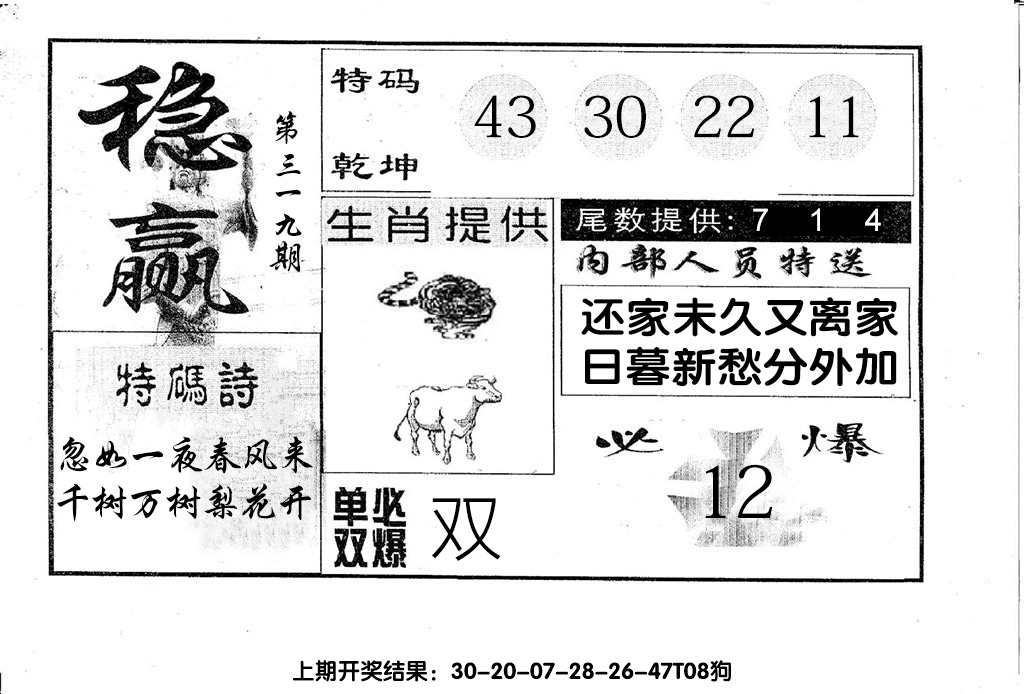 稳赢
第三一九期
特码
乾坤
43 30 22 11
生肖提供
尾数提供: 7 1 4
内部人员特送
还家未久又离家
日暮新愁分外加
特碼詩
忽如一夜春风来
千树万树梨花开
单双必爆
双
必爆
12
上期开奖结果：30-20-07-28-26-47T08狗